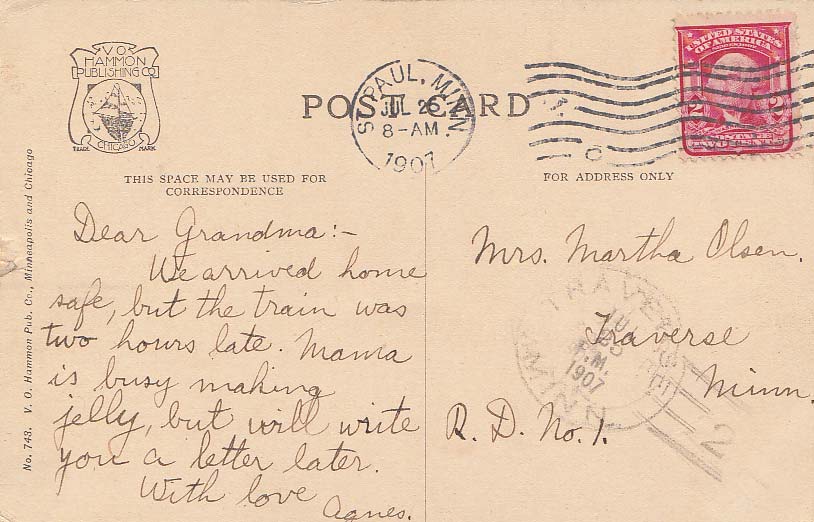 V O
HAMMON
PUBLISHING CO
CHICAGO
TRADE MARK
POST CARD
ST. PAUL, MINN.
JUL 26
8-AM
1907
UNITED STATES
OF AMERICA
2 2
TWO CENTS
THIS SPACE MAY BE USED FOR
CORRESPONDENCE
FOR ADDRESS ONLY
Dear Grandma:-
We arrived home
safe, but the train was
two hours late. Mama
is busy making
jelly, but will write
you a letter later.
With love
Agnes.
Mrs. Martha Olsen.
Traverse
Minn.
R. D. No. 1.
TRAVERSE
MINN.
P.M.
1907
2
No. 743. V. O. Hammon Pub. Co., Minneapolis and Chicago